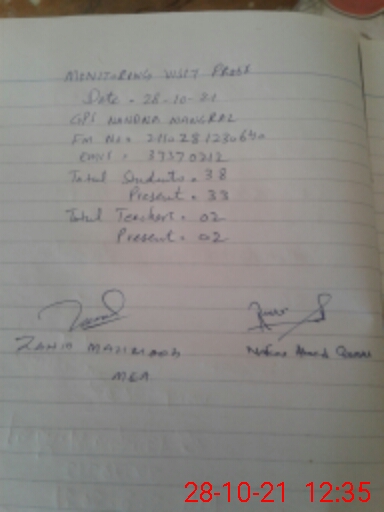 MONITORING VISIT PROOF
Date = 28-10-21
GPS NANDNA MANGRAL
EMIS = 37370212
Total Students = 38
Present = 33
Total Teachers = 02
Present = 02
ZAHID MAHMOOD
Ahmad
MEA
28-10-21 12:35